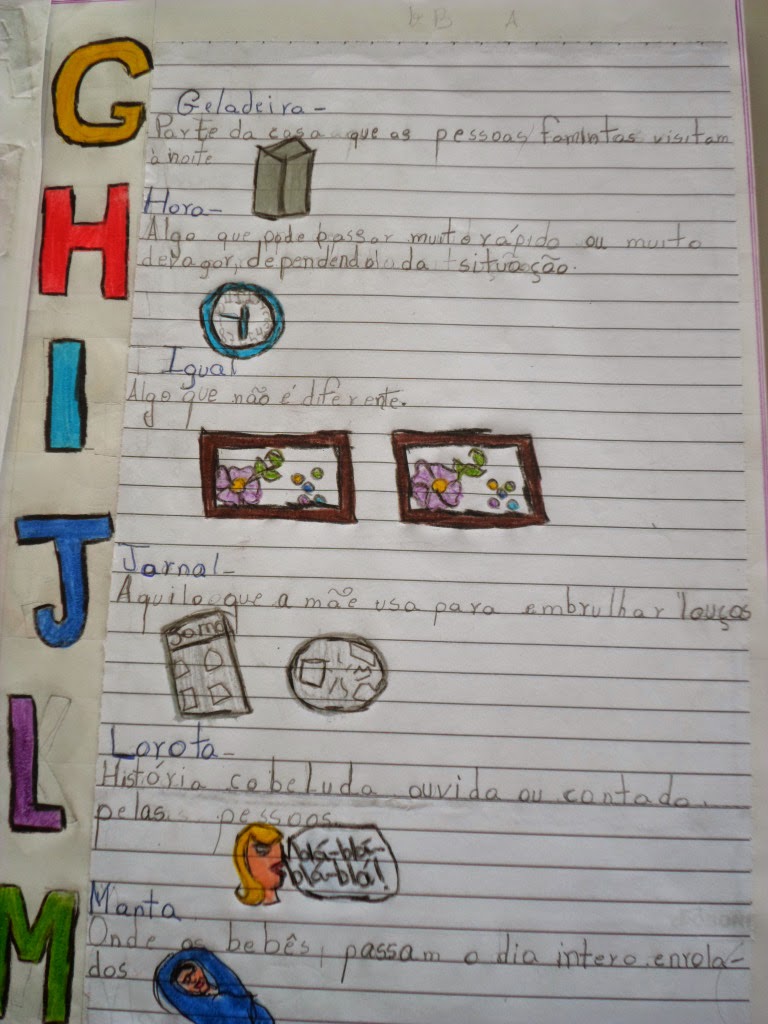 B A
G
Geladeira-
Parte da casa que as pessoas famintas visitam
à noite
H
Hora-
Algo que pode passar muito rápido ou muito
devagar, dependendo da situação.
I
Igual
Algo que não é diferente.
J
Jornal-
Aquilo que a mãe usa para embrulhar louças
L
Lorota-
História cabeluda ouvida ou contada
pelas pessoas.
blá-blá-
blá-blá!
M
Manta
Onde os bebês, passam o dia intero enrola-
dos